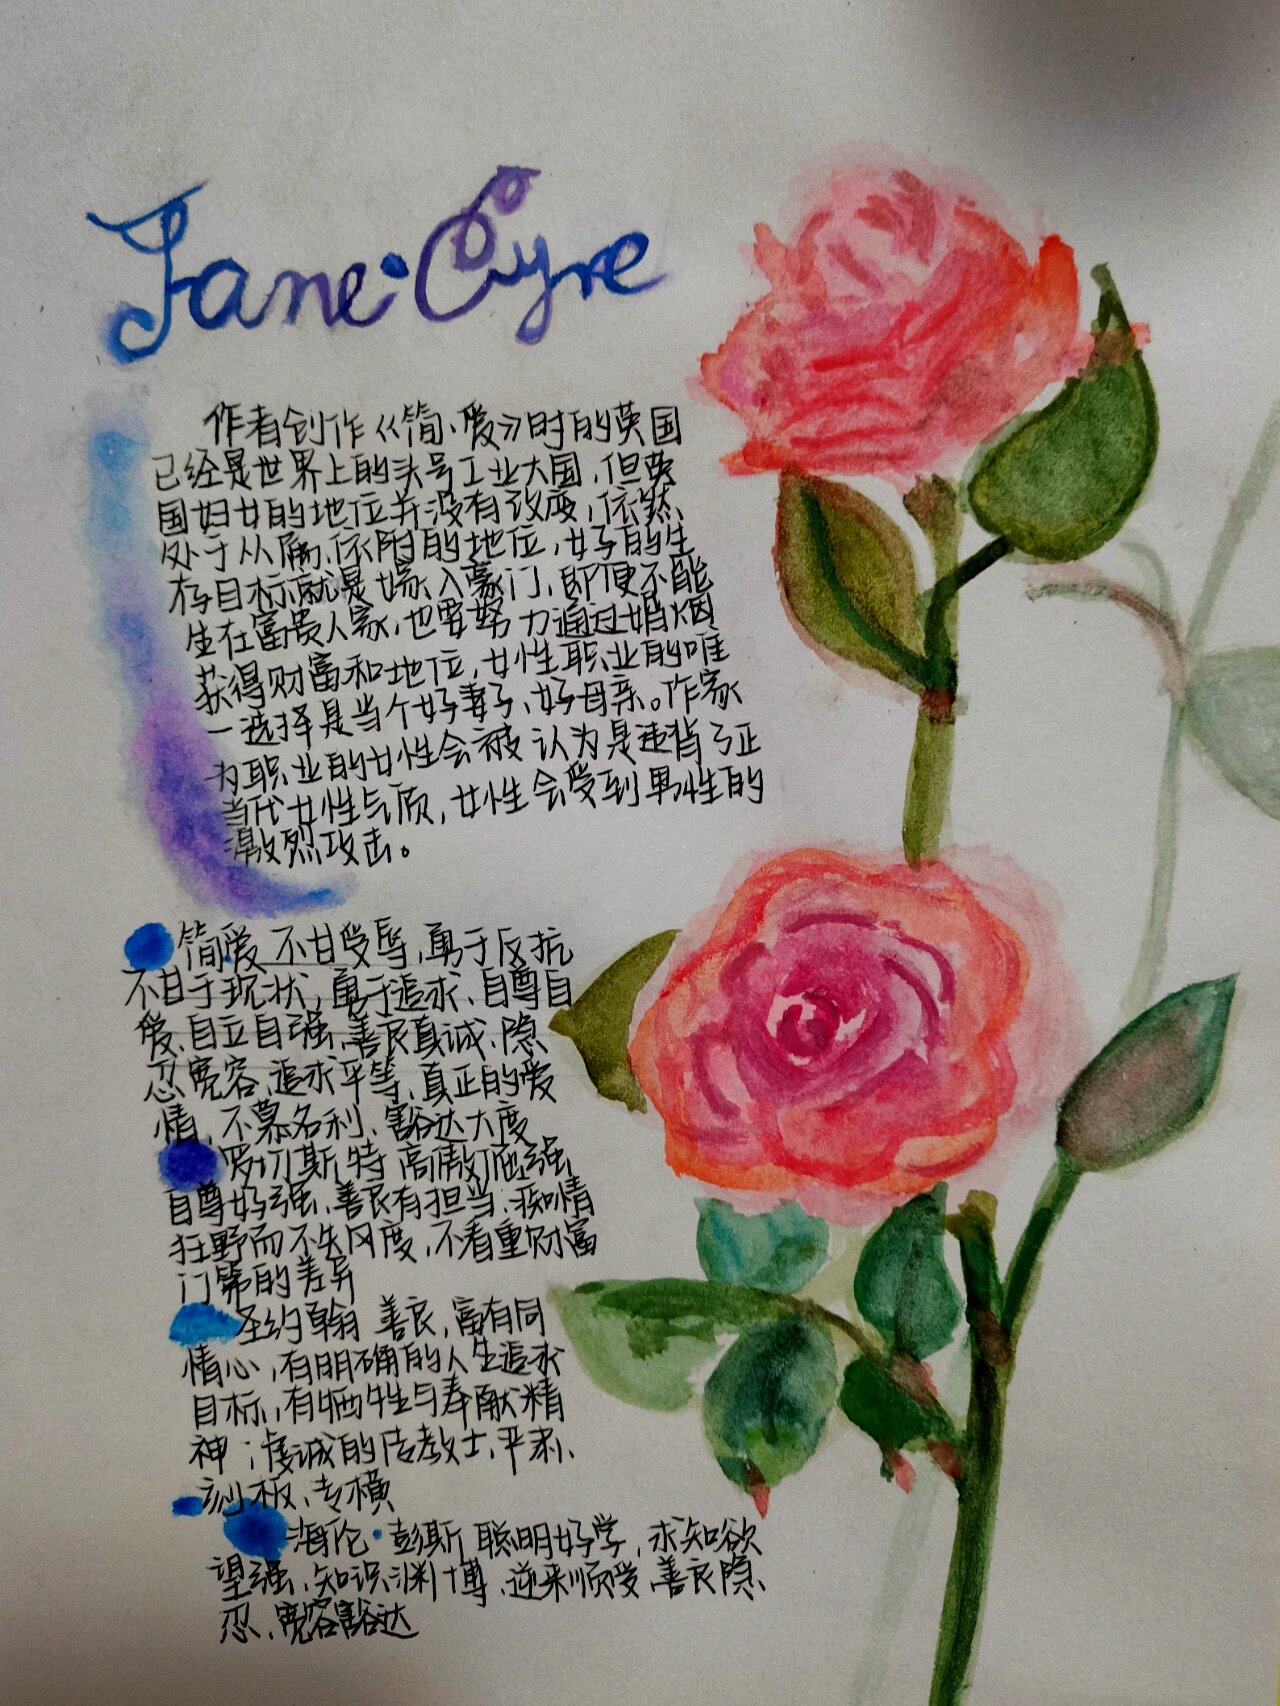 Jane·Eyre
作者创作《简·爱》时的英国
已经是世界上的头号工业大国,但英
国妇女的地位并没有改变,依然
处于从属、依附的地位,女子的生
存目标就是嫁入豪门,即便不能
生在富贵人家,也要努力通过婚烟
获得财富和地位,女性职业的唯
一选择是当个好妻子、好母亲。作家
为职业的女性会被认为是违背了正
当代女性气质,女性会受到男性的
激烈攻击。
简爱 不甘受辱,勇于反抗
不甘于现状,勇于追求、自尊自
爱、自立自强、善良真诚、隐
忍宽容、追求平等、真正的爱
情,不慕名利、豁达大度
罗切斯特 高傲顽强
自尊好强、善良有担当;痴情
狂野而不失风度,不看重财富
门第的差异
圣约翰 善良,富有同
情心,有明确的人生追求
目标,有牺牲与奉献精
神;虔诚的传教士、严肃、
刻板、专横
海伦·彭斯 聪明好学,求知欲
望强、知识渊博、逆来顺受、善良隐
忍、宽容豁达